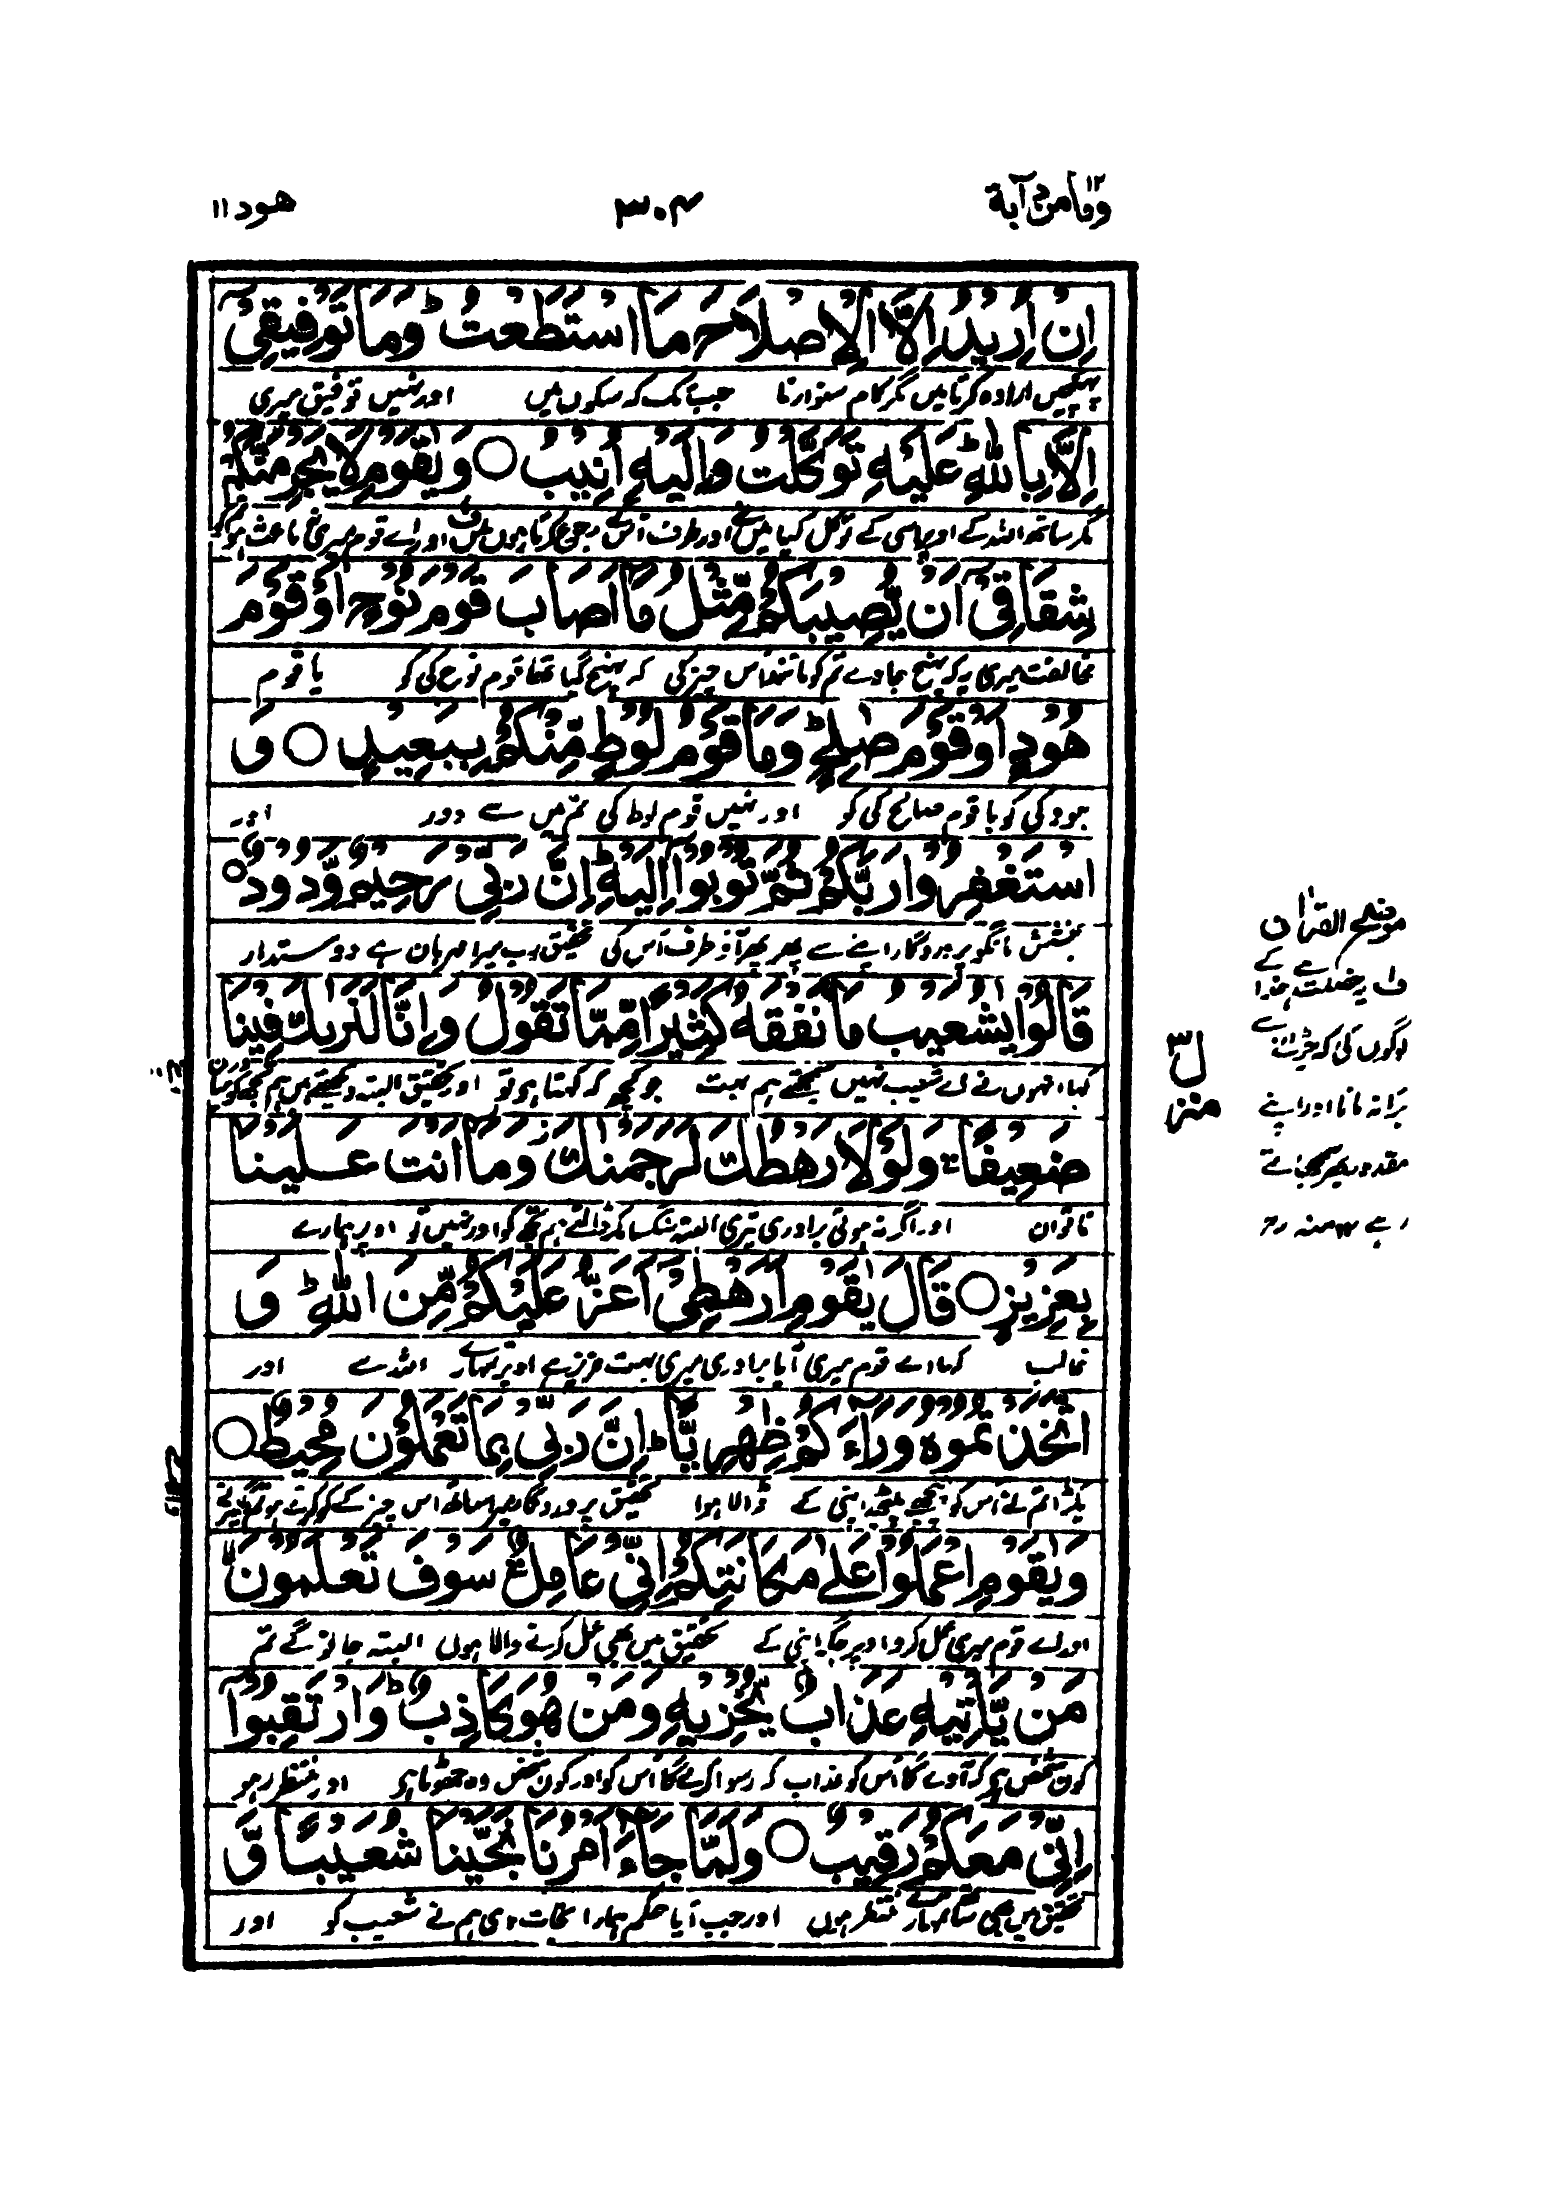 وما من دآبة ١٢
٣٠۴
هود ١١
اِنْ اُرِیْدُ اِلَّا الْاِصْلَاحَ مَا اسْتَطَعْتُ ؕ وَمَا تَوْفِیْقِیْۤ
نہیں ارادہ کرتا میں مگر کام سنوارنا جب تک کہ سکوں میں اور نہیں توفیق میری
اِلَّا بِاللّٰهِ ؕ عَلَیْهِ تَوَكَّلْتُ وَاِلَیْهِ اُنِیْبُ ○ وَیٰقَوْمِ لَا یَجْرِمَنَّكُمْ
مگر ساتھ اللہ کے اوپر اسی کے توکل کیا میں نے اور طرف اُسی کے رجوع کرتا ہوں میں اور اے قوم میری نہ باعث ہو تم کو
شِقَاقِیْۤ اَنْ یُّصِیْبَكُمْ مِّثْلُ مَاۤ اَصَابَ قَوْمَ نُوْحٍ اَوْ قَوْمَ
مخالفت میری یہ کہ پہنچ جاوے تم کو مانند اس چیز کی کہ پہنچ گیا تھا قوم نوح کی کو یا قوم
هُوْدٍ اَوْ قَوْمَ صٰلِحٍ ؕ وَمَا قَوْمُ لُوْطٍ مِّنْكُمْ بِبَعِیْدٍ ○ وَ
ہود کی کو یا قوم صالح کی کو اور نہیں قوم لوط کی تم میں سے دور اور
اسْتَغْفِرُوْا رَبَّكُمْ ثُمَّ تُوْبُوْۤا اِلَیْهِ ؕ اِنَّ رَبِّیْ رَحِیْمٌ وَّدُوْدٌ ○
بخشش مانگو پروردگار اپنے سے پھر پھر آؤ طرف اُس کی تحقیق رب میرا مہربان ہے دوستدار
قَالُوْا یٰشُعَیْبُ مَا نَفْقَهُ كَثِیْرًا مِّمَّا تَقُوْلُ وَاِنَّا لَنَرٰىكَ فِیْنَا
کہا انہوں نے اے شعیب نہیں سمجھتے ہم بہت جو کچھ کہ کہتا ہے تو اور تحقیق البتہ دیکھتے ہیں ہم تجھ کو
ضَعِیْفًا ۚ وَلَوْلَا رَهْطُكَ لَرَجَمْنٰكَ ؗ وَمَاۤ اَنْتَ عَلَیْنَا
ناتوان اور اگر نہ ہوتی برادری تیری البتہ سنگسار کر ڈالتے ہم تجھ کو اور نہیں تو اوپر ہمارے
بِعَزِیْزٍ ○ قَالَ یٰقَوْمِ اَرَهْطِیْۤ اَعَزُّ عَلَیْكُمْ مِّنَ اللّٰهِ ؕ وَ
غالب کہا اے قوم میری آیا برادری میری بہت عزیز ہے اوپر تمہارے اللہ سے اور
اتَّخَذْتُمُوْهُ وَرَآءَكُمْ ظِهْرِیًّا ؕ اِنَّ رَبِّیْ بِمَا تَعْمَلُوْنَ مُحِیْطٌ ○
پکڑا تم نے اُس کو پیچھے پیٹھ اپنی کے ڈالا ہوا تحقیق پروردگار میرا ساتھ اس چیز کے کہ کرتے ہو تم
وَیٰقَوْمِ اعْمَلُوْا عَلٰی مَكَانَتِكُمْ اِنِّیْ عَامِلٌ ؕ سَوْفَ تَعْلَمُوْنَ ۙ
اور اے قوم میری عمل کرو اوپر جگہ اپنی کے تحقیق میں بھی عمل کرنے والا ہوں البتہ جانو گے تم
مَنْ یَّاْتِیْهِ عَذَابٌ یُّخْزِیْهِ وَمَنْ هُوَ كَاذِبٌ ؕ وَارْتَقِبُوْۤا
کون شخص ہے کہ آوے گا اُس کو عذاب کہ رسوا کرے گا اُس کو اور کون شخص وہ جھوٹا ہے اور منتظر رہو
اِنِّیْ مَعَكُمْ رَقِیْبٌ ○ وَلَمَّا جَآءَ اَمْرُنَا نَجَّیْنَا شُعَیْبًا وَّ
تحقیق میں بھی ساتھ تمہارے منتظر ہوں اور جب آیا حکم ہمارا نجات دی ہم نے شعیب کو اور
موضح القرآن
ف۱ یہ خصلت ہے خدا کے
لوگوں کی کہ
برا نہ مانا اور اپنے
مقدور بھر سمجھاتے
رہے ١٢ منہ رح
منزل ٣